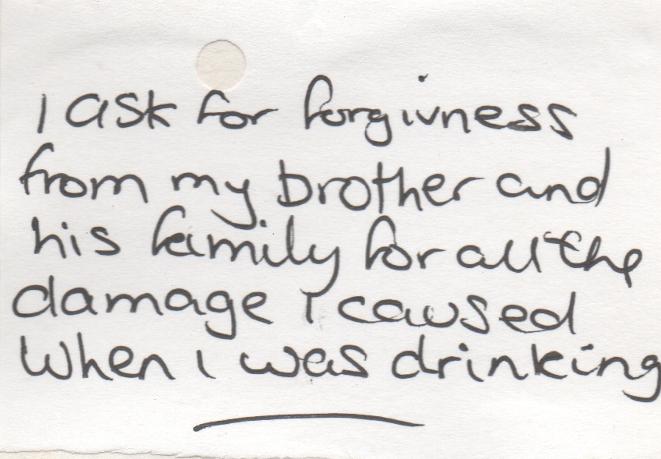 I ask for forgivness
from my brother and
his family for all the
damage I caused
When I was drinking